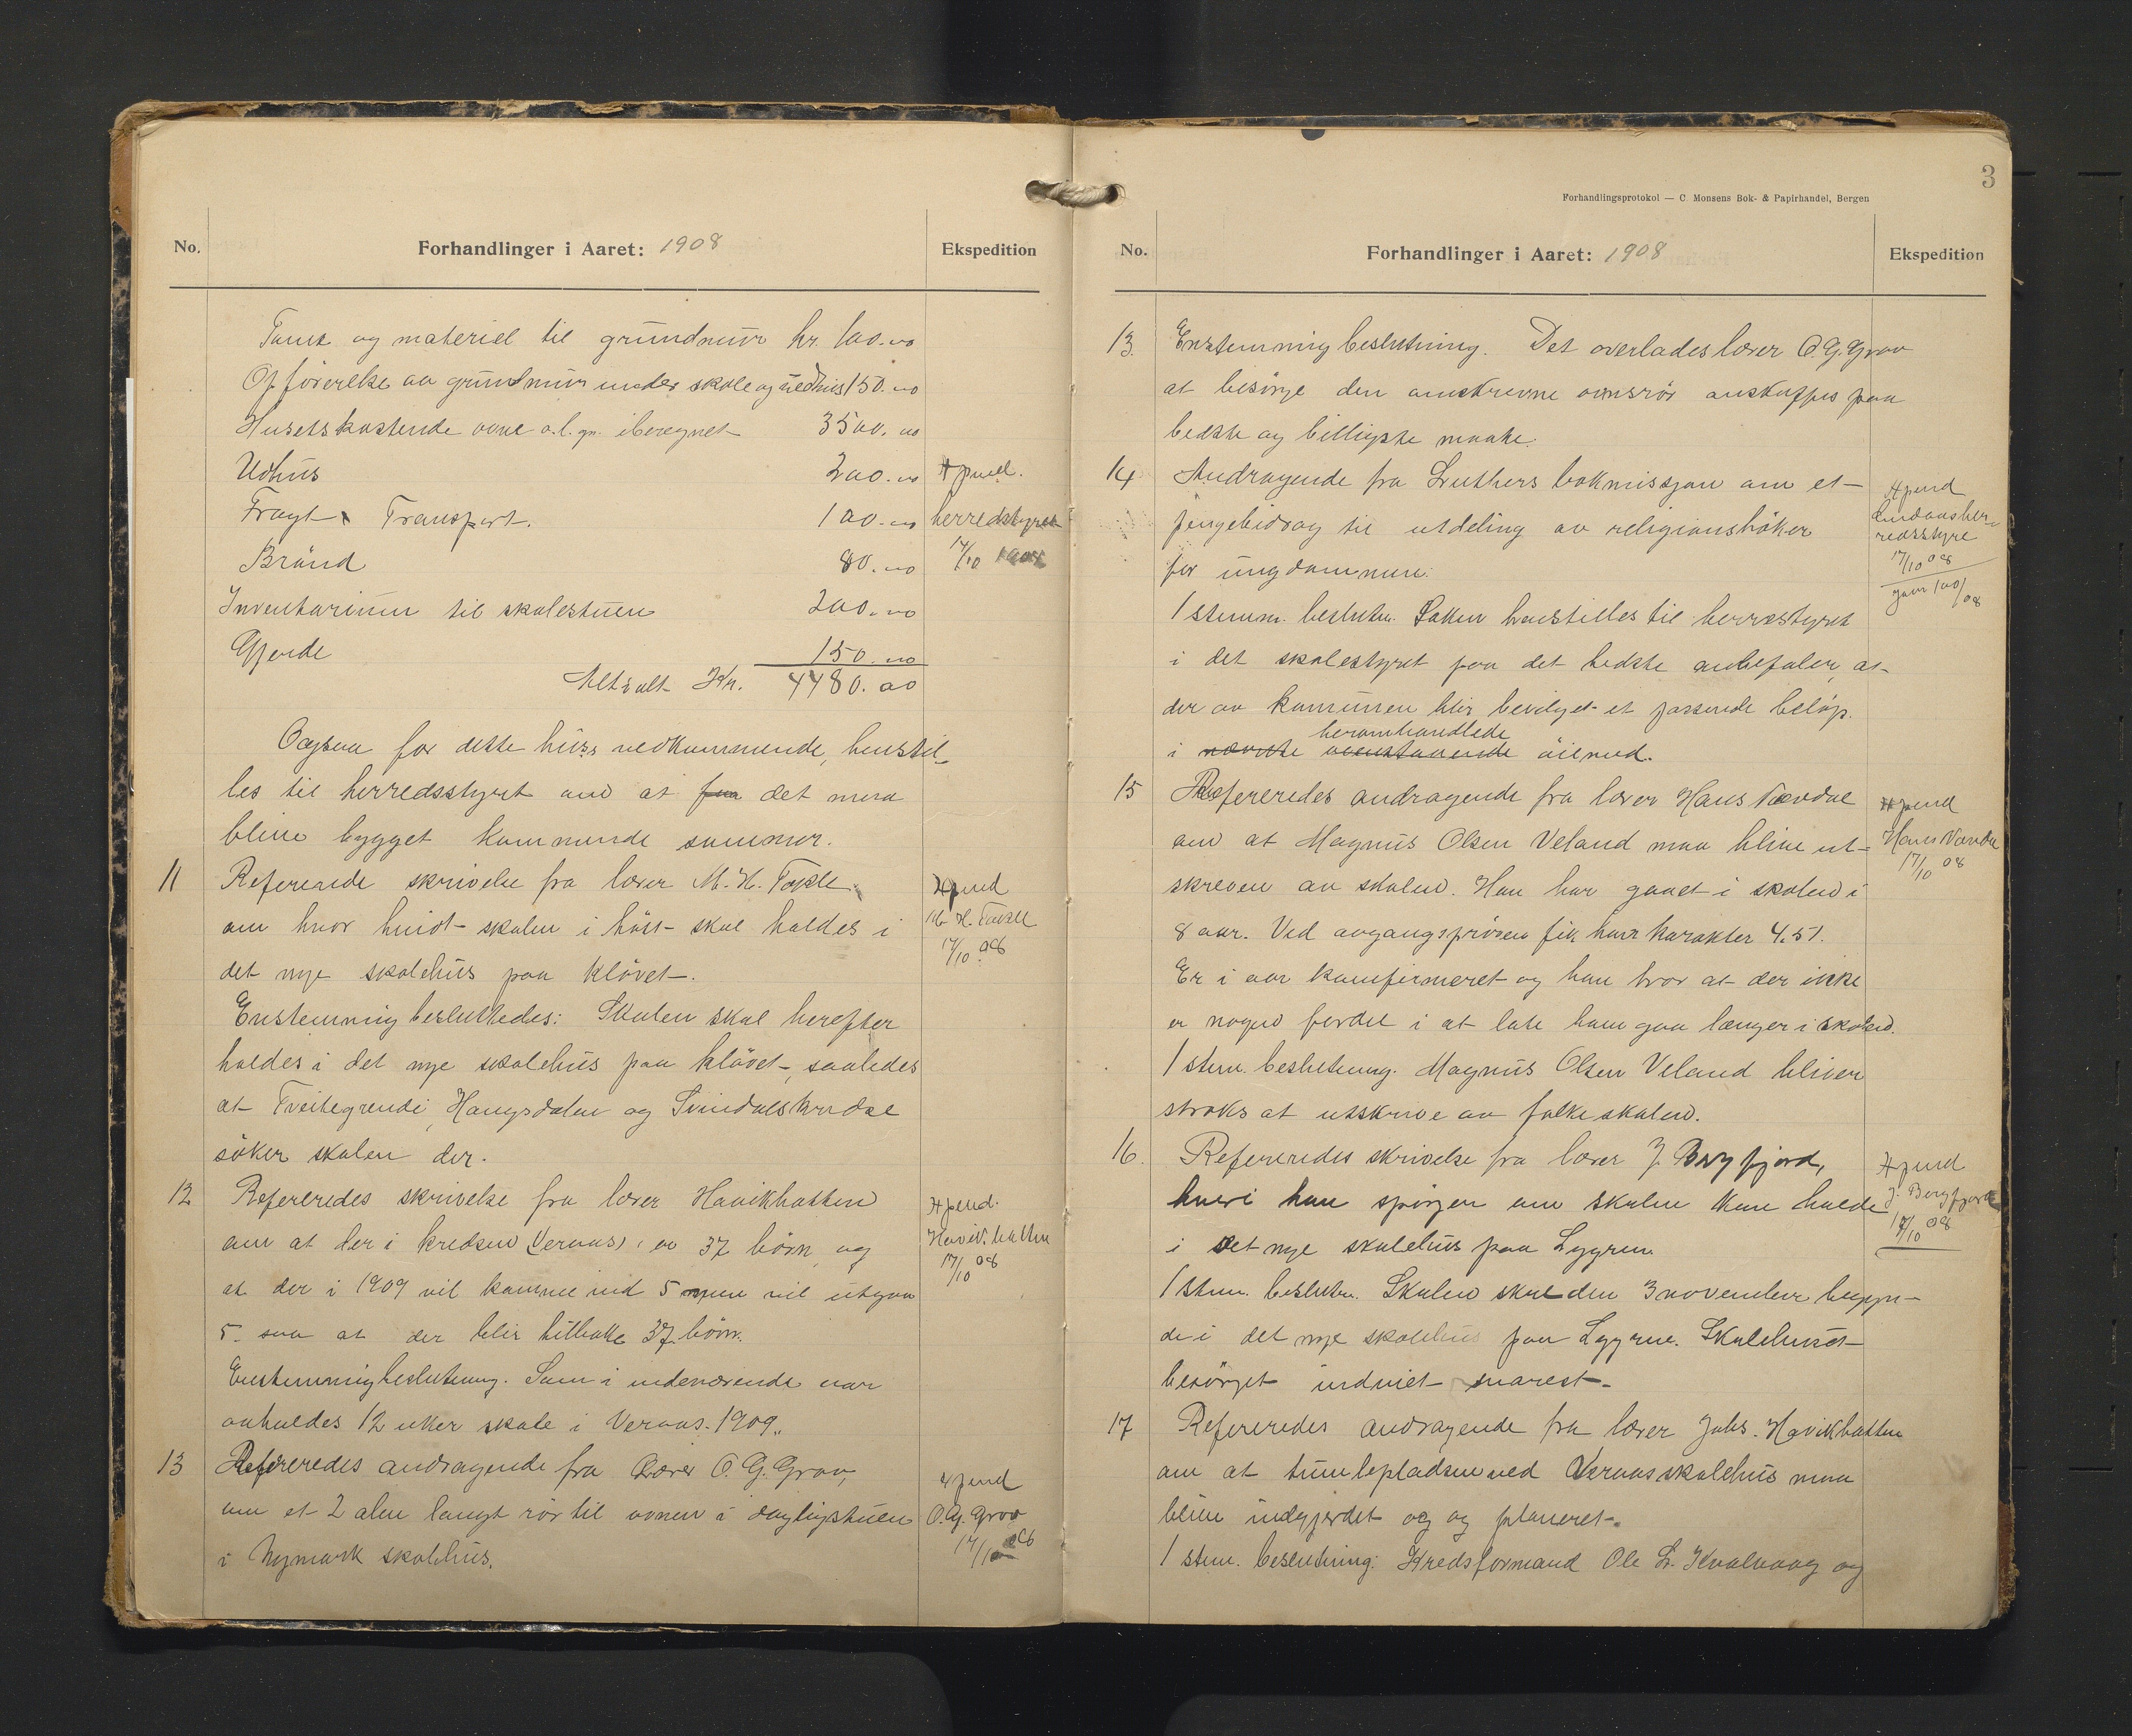 No.
Forhandlinger i Aaret: 1908
Ekspedition
Tomt og materiel til grundmur kr. 100.00
Opförelse av grundmur under skole og vedhus 150.00
Husets kostende ovne o.l. gr. iberegnet 3500.00
Udhus 200.00
Fragt & Transport. 100.00
Brönd 80.00
Inventarium til skolestuen 200.00
Gjerde 150.00
Altsalt Kr. 4480.00
Xpued.
herredstyret
17/10 1908
Ogsaa for dette hus's vedkommende, henstil-
les til herredsstyret om at faa det maa
blive bygget kommende sommer.
11 Refererede skrivelse fra lærer M. H. Takle
om hvor hvidt skolen i höst skal holdes i
det nye skolehus paa Klövet.
Enstemmig besluttedes: Skolen skal herefter
holdes i det nye skolehus paa Klövet, saaledes
at Tveitegrende, Haugsdalen og Svindalskredse
söker skolen der.
Xpend
M. H. Takle
17/10 08
12 Refereredes skrivelse fra lærer Haavikhatten
om at der i kredsen Veraas er 37 börn og
at der i 1909 vil komme ind 5 men vil utgaa
5. saa at der blir tilbake 37 börn.
Enstemmig beslutning. Som i indeværende aar
avholdes 12 uker skole i Veraas. 1909.
Xpend.
Havikhatten
17/10 08
13 Refereredes andragende fra lærer O. G. Grov,
om et 2 alen langt rör til ovnen i dagligstuen
i Nymark skolehus.
Xpend
O. G. Grov
17/10 08
3
Forhandlingsprotokol — C. Monsens Bok- & Papirhandel, Bergen
No.
Forhandlinger i Aaret: 1908
Ekspedition
13. Enstemmig beslutning. Det overlades lærer O. G. Grov
at besörge den omskrevne ovnsrör anskaffes paa
bedste og billigste maate.
14 Andragende fra Luthers bokmissjon om et
pengebidrag til utdeling av religionsböker
for ungdommen.
1 stemm. beslutn. Saken henstilles til herredstyret
i det skolestyret paa det bedste anbefaler, at
der av kommunen blir bevilget et passende belöp.
heromhandlede
i nævnte ovenstaaende öiemed.
Xpend
Lindaas her-
redsstyre
17/10 08
15 Refereredes andragende fra lærer Hans Nævdal
om at Magnus Olsen Veland maa blive ut-
skreven av skolen. Han har gaaet i skolen i
8 aar. Ved avgangspröven fik han karakter 4.51.
Er i aar konfirmeret og han tror at der ikke
er nogen fordel i at late ham gaa længer i skolen.
1 stem. beslutning. Magnus Olsen Veland bliver
straks at utskrive av folkeskolen.
Xpend
Hans Nævdal
17/10 08
16. Refereredes skrivelse fra lærer J. Bergfjord,
hvori han spörger om skolen kan holde
i det nye skolehus paa Lygren.
1 stem. beslutn. Skolen skal den 3 november begyn-
de i det nye skolehus paa Lygren. Skolehuset
besörget indviet snarest.
Xpend
J. Bergfjord
17/10 08
17 Refereredes andragende fra lærer Johs. Havikhatten
om at tumlepladsen ved Veraas skolehus maa
blive indgjerdet og og planeret.
1 stem. beslutning: Kredsformand Ole L. Kvalvaag og